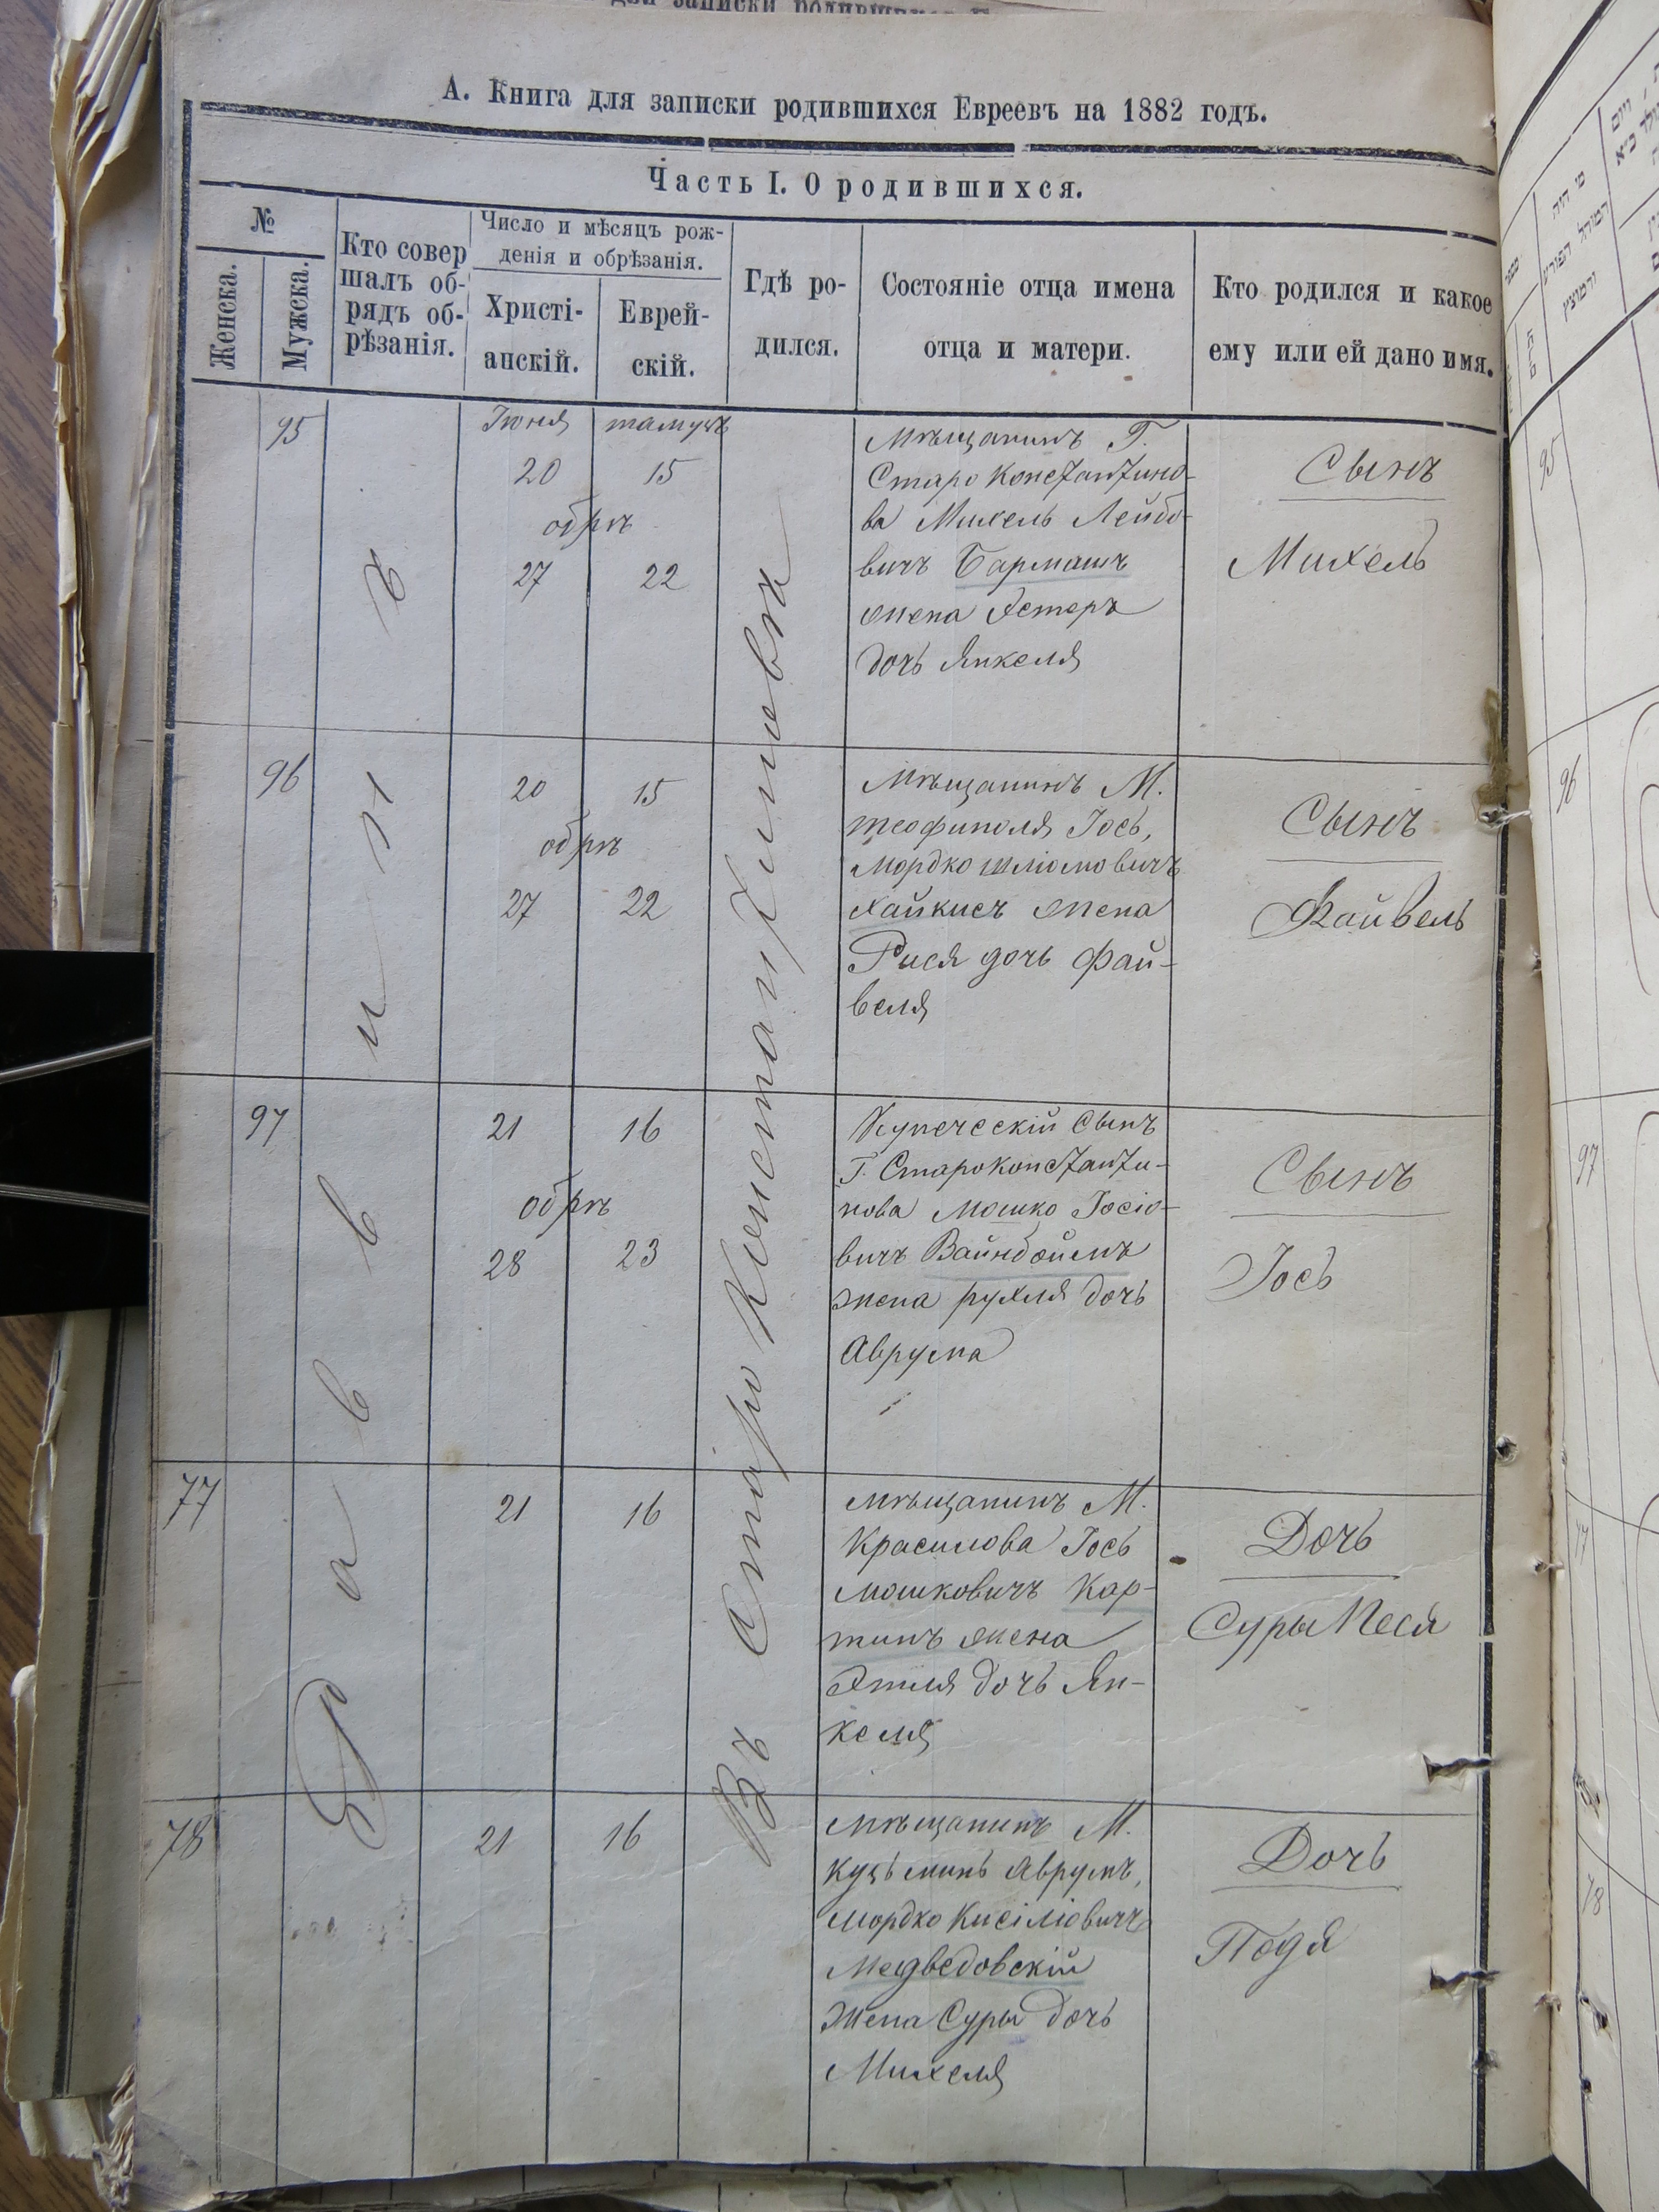 А. Книга для записки родившихся Евреевъ на 1882 годъ.
Часть I. О родившихся.
№
Женска.
Мужска.
Кто совер
шалъ об-
рядъ об-
рѣзанія.
Число и мѣсяцъ рож-
денія и обрѣзанія.
Христі-
анскій.
Еврей-
скій.
Гдѣ ро-
дился.
Состояніе отца имена
отца и матери.
Кто родился и какое
ему или ей дано имя.
Раввинъ
Въ Старо Константиновѣ
95
Іюня тамузъ
20 15
обрѣ
27 22
Мѣщанинъ Г.
Старо Константино-
ва Михель Лейбо-
вичъ Бармашъ
жена Эстеръ
дочь Янкеля
Сынъ
Михель
96
20 15
обрѣ
27 22
Мѣщанинъ М.
теофиполя Іось,
Мордко шліомовичъ
Хайкисъ жена
Рися дочь Фай-
веля
Сынъ
Файвель
97
21 16
обрѣ
28 23
Купеческій Сынъ
Г. Староконстанти-
нова Мошко Іосіо-
вичъ Вайнбоймъ
жена рухля дочь
Аврума
Сынъ
Іось
77
21 16
Мѣщанинъ М.
Красилова Іось
мошковичъ Кар-
тинъ жена
Этля дочь Ян-
келя
Дочь
Суры Песя
78
21 16
Мѣщанинъ М.
Кузьминъ Аврумъ,
Мордко Кисіліовичъ
Медведовскій
Жена Суры дочь
Михеля
Дочь
95
96
97
77
78